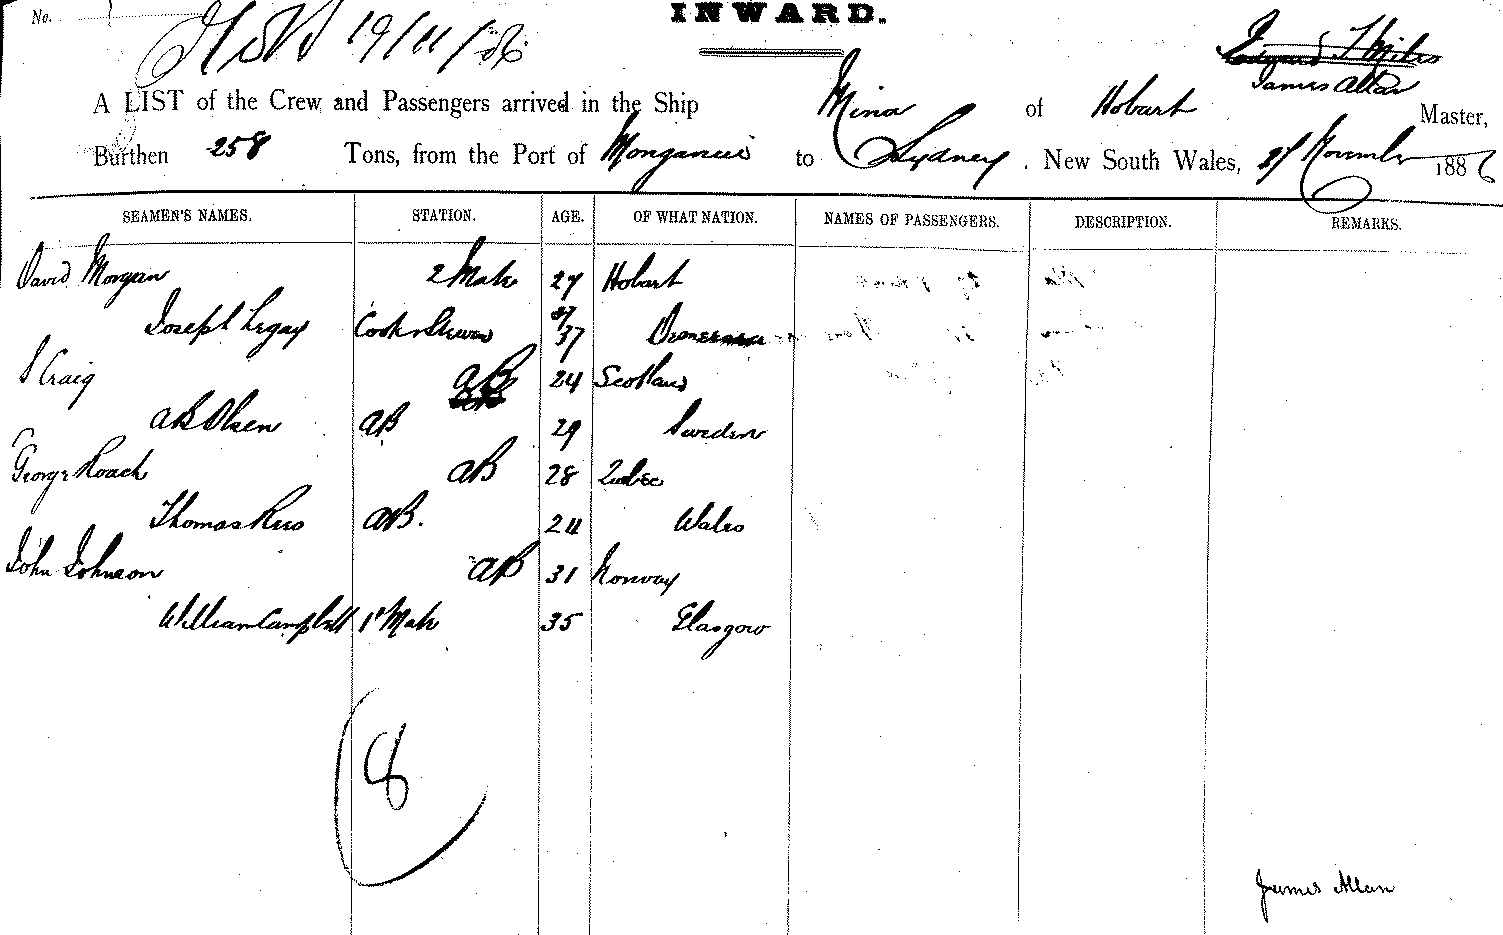 No.
19/11/86
INWARD.
Edward T Miles
James Allan
A LIST of the Crew and Passengers arrived in the Ship Mina of Hobart Master,
Burthen 258 Tons, from the Port of to Sydney. New South Wales, November 1886
SEAMEN'S NAMES. STATION. AGE. OF WHAT NATION. NAMES OF PASSENGERS. DESCRIPTION. REMARKS.
David Morgan 2 Mate 27 Hobart
Joseph Legay Cook & 37
S Craig AB 24 Scotland
AB Olsen AB 29 Sweden
George Roach AB 28
Thomas Rees AB. 24 Wales
John Johnson AB 31 Norway
William Campbell 1st Mate 35 Glasgow
8
James Allan